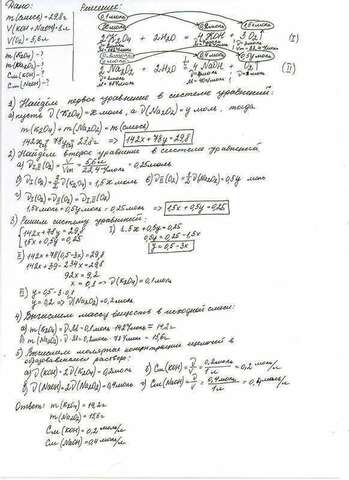 Дано:
Решение:
m(смеси)=29,8г
V(KOH+NaOH)=1л
V(O₂)=5,6л
m(K₂O₄)-?
m(Na₂O₂)-?
Cм(KOH)-?
Cм(NaOH)-?
2K₂O₄ + 2H₂O = 4KOH + 3O₂↑ (I)
2Na₂O₂ + 2H₂O = 4NaOH + O₂↑ (II)
1) Найдём первое уравнение в системе уравнений:
а) пусть ν(K₂O₄)=x моль, а ν(Na₂O₂)=y моль, тогда
m(K₂O₄)+m(Na₂O₂)=m(смеси)
142x+78y=29,8г => 142x+78y=29,8
2) Найдём второе уравнение в системе уравнений
а) νI,II(O₂)=V/Vm=5,6л/22,4л/моль=0,25моль
б) νI(O₂)=3/2ν(K₂O₄)=1,5x моль в) νII(O₂)=1/2ν(Na₂O₂)=0,5y моль
г) νI(O₂)+νII(O₂)=νI,II(O₂)
1,5x моль+0,5y моль=0,25моль => 1,5x+0,5y=0,25
3) Решаем систему уравнений:
142x+78y=29,8
1,5x+0,5y=0,25
I) 1,5x+0,5y=0,25
0,5y=0,25-1,5x
y=0,5-3x
II) 142x+78(0,5-3x)=29,8
142x+39-234x=29,8
92x=9,2
x=0,1 => ν(K₂O₄)=0,1моль
III) y=0,5-3·0,1
y=0,2 => ν(Na₂O₂)=0,2моль
4) Вычисляем массу веществ в исходной смеси:
а) m(K₂O₄)=ν·M=0,1моль·142г/моль=14,2г
б) m(Na₂O₂)=ν·M=0,2моль·78г/моль=15,6г
5) Вычисляем молярные концентрации щелочей в
образовавшемся растворе:
а) ν(KOH)=2ν(K₂O₄)=0,2моль б) Cм(KOH)=ν/V=0,2моль/1л=0,2 моль/л
в) ν(NaOH)=2ν(Na₂O₂)=0,4моль г) Cм(NaOH)=ν/V=0,4моль/1л=0,4моль/л
Ответ: m(K₂O₄)=14,2г
m(Na₂O₂)=15,6г
Cм(KOH)=0,2моль/л
Cм(NaOH)=0,4моль/л